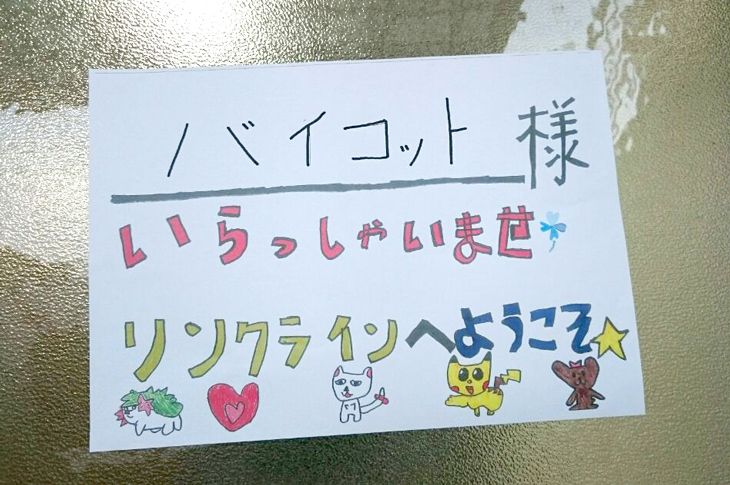 ノバイコット様
いらっしゃいませ
リンクラインへようこそ